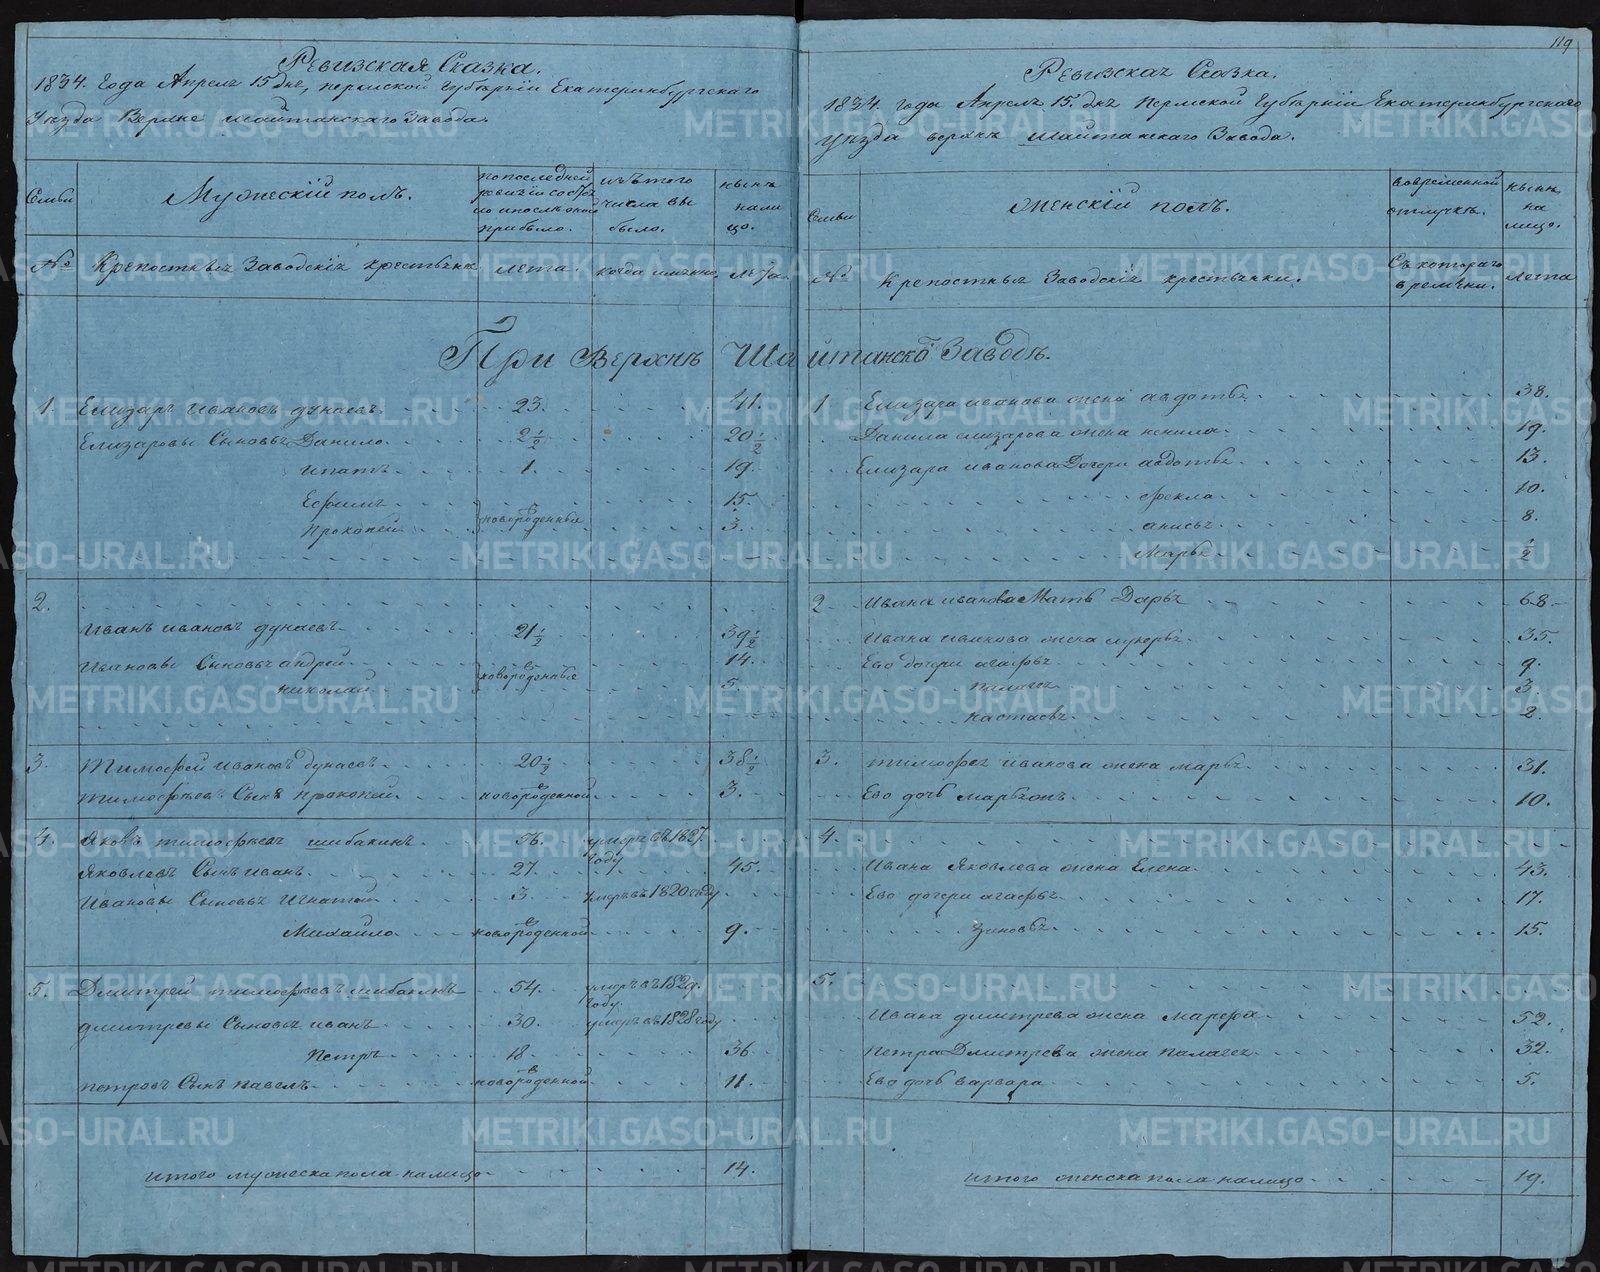 119
Ревизская Сказка.
1834. Года Апреля 15 дня, пермской Губерніи Екатеринбургскаго
Уезда Верхне шайтанскаго Завода.
Семьи
Мужескій полъ.
по последней
ревизіи состоя
ло и после оной
прибыло.
изъ того
числа вы
было.
ныне
нали
цо.
№
Крепостныя Заводскія крестьяне
лета.
когда именно
лета.
Ревизская Сказка.
1834. года Апреля 15. дня Пермской Губерніи Екатеринбургскаго
уезда верхне шайтанскаго Завода.
Семьи
женскій полъ.
во временной
отлучке.
ныне
на
лицо.
№
Крепостныя Заводскія крестьянки.
Съ котораго
времени.
лета
При Верхне Шайтанско Заводе.
1. Елизаръ ивановъ дунаевъ. 23. 41.
Елизаровы Сыновья Данило. 2 1/2 20 1/2
ипатъ. 1. 19.
Ефимъ. 15.
новорожденные
Прокопей 3.
2.
Иванъ ивановъ дунаевъ. 21 1/2 39 1/2
Ивановы Сыновья андрей. 14.
новорожденные
николай 5.
3. Тимофей ивановъ дунаевъ. 20 1/2 38 1/2
Тимофеевъ Сынъ прокопей. новорожденной 3.
4. Яковъ тимофеевъ шибакинъ. 56. умеръ въ 1827.
году
Яковлевъ Сынъ иванъ. 27. 45.
Ивановы Сыновья Игнатей 3. умеръ въ 1820 году
Михайло. новорожденной 9.
5. Дмитрей тимофеевъ шибакинъ 54. умеръ въ 1829.
году.
дмитревы Сыновья иванъ 30. умеръ въ 1828 году
Петръ 18. 36
петровъ Сынъ павелъ. новорожденной 11.
итого мужеска пола налицо 14.
1 Елизара иванова жена авдотья 38.
Данила елизарова жена ненила. 19.
Елизара иванова Дочери авдотья 13.
фекла. 10.
анисья. 8.
Марья 1/2
2 Ивана иванова Мать Дарья 68
Ивана иванова жена лукерья. 35.
Ево дочери агафья 9.
палагея 3.
настасья. 2.
3. Тимофея иванова жена марья. 31.
Ево дочь марья 10.
4.
Ивана Яковлева жена Елена. 43.
Ево дочери агафья. 17.
Зиновья. 15.
5.
Ивана дмитрева жена Марфа 52.
Петра Дмитрева жена палагея 32.
Ево дочь варвара 5.
итого женска пола налицо. 19.
METRIKI.GASO-URAL.RU